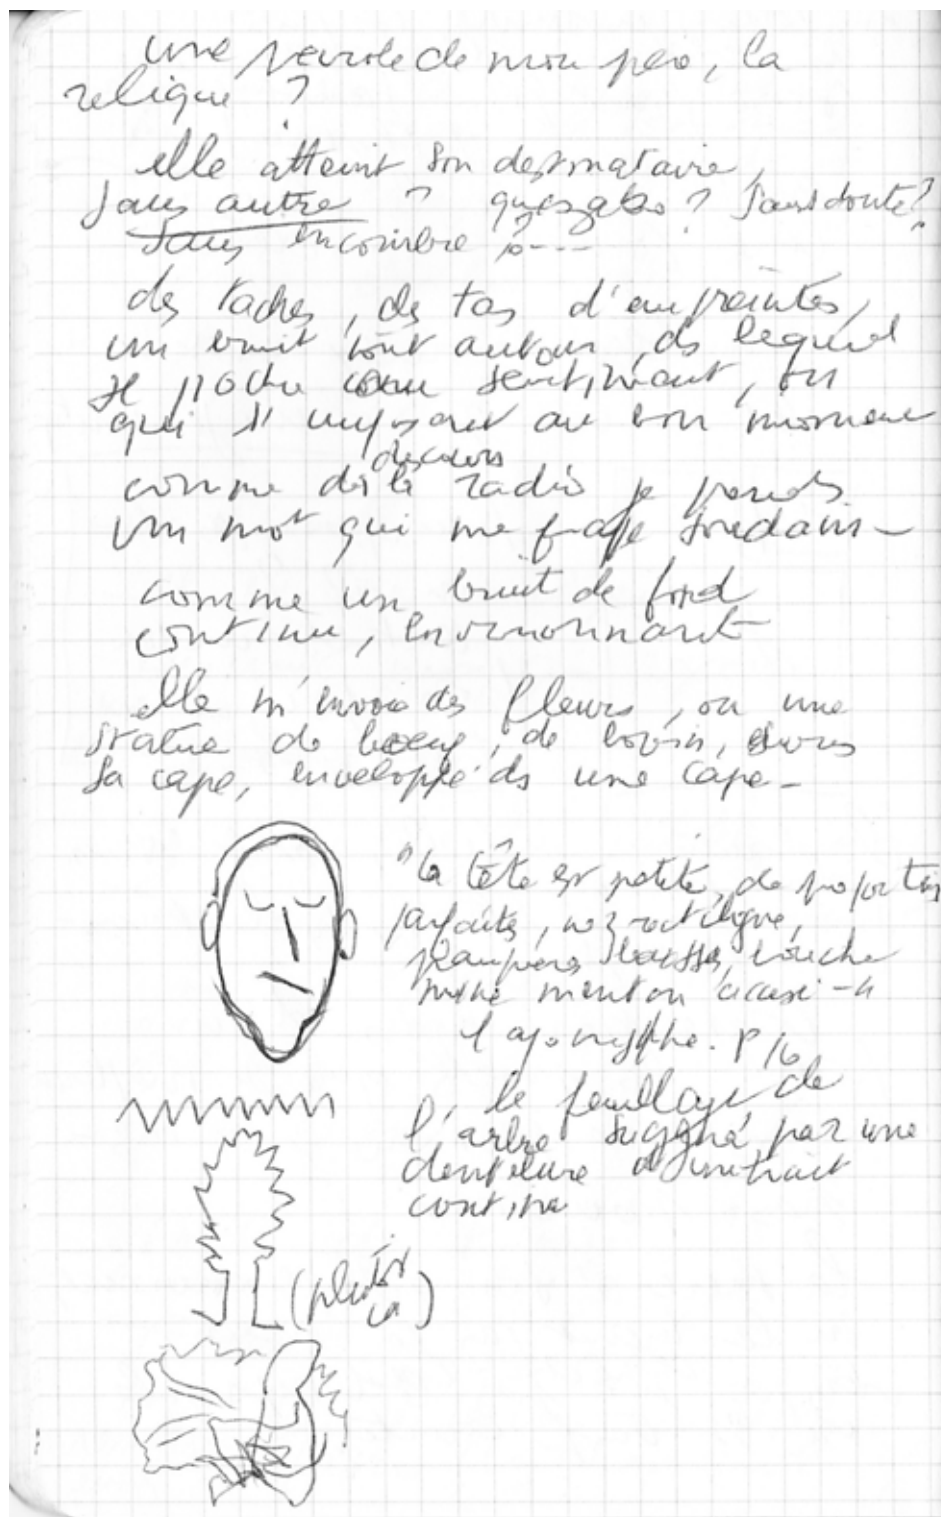 une parole de mon père, la
relique ?
elle atteint son destinataire,
sans autre ? quezako ? sans doute ?
sans encombre ? ---
des taches, des tas d'empreintes,
un bruit tout autour, ds lequel
se sentiment, ou
qui s'imposent au bon moment
comme ds le discours radio je prends
un mot qui me frappe soudain -
comme un bruit de fond
continu, environnant
elle m'envoie des fleurs, ou une
statue de boeuf, de bovin,
sa cape, enveloppé ds une cape -
"la tête est petite, de proportions
parfaites, nez rectiligne,
paupières baissées, bouche
menton
P 16
le feuillage de
l'arbre suggéré par une
dentelure d'un trait
continu
(plutôt
ça)